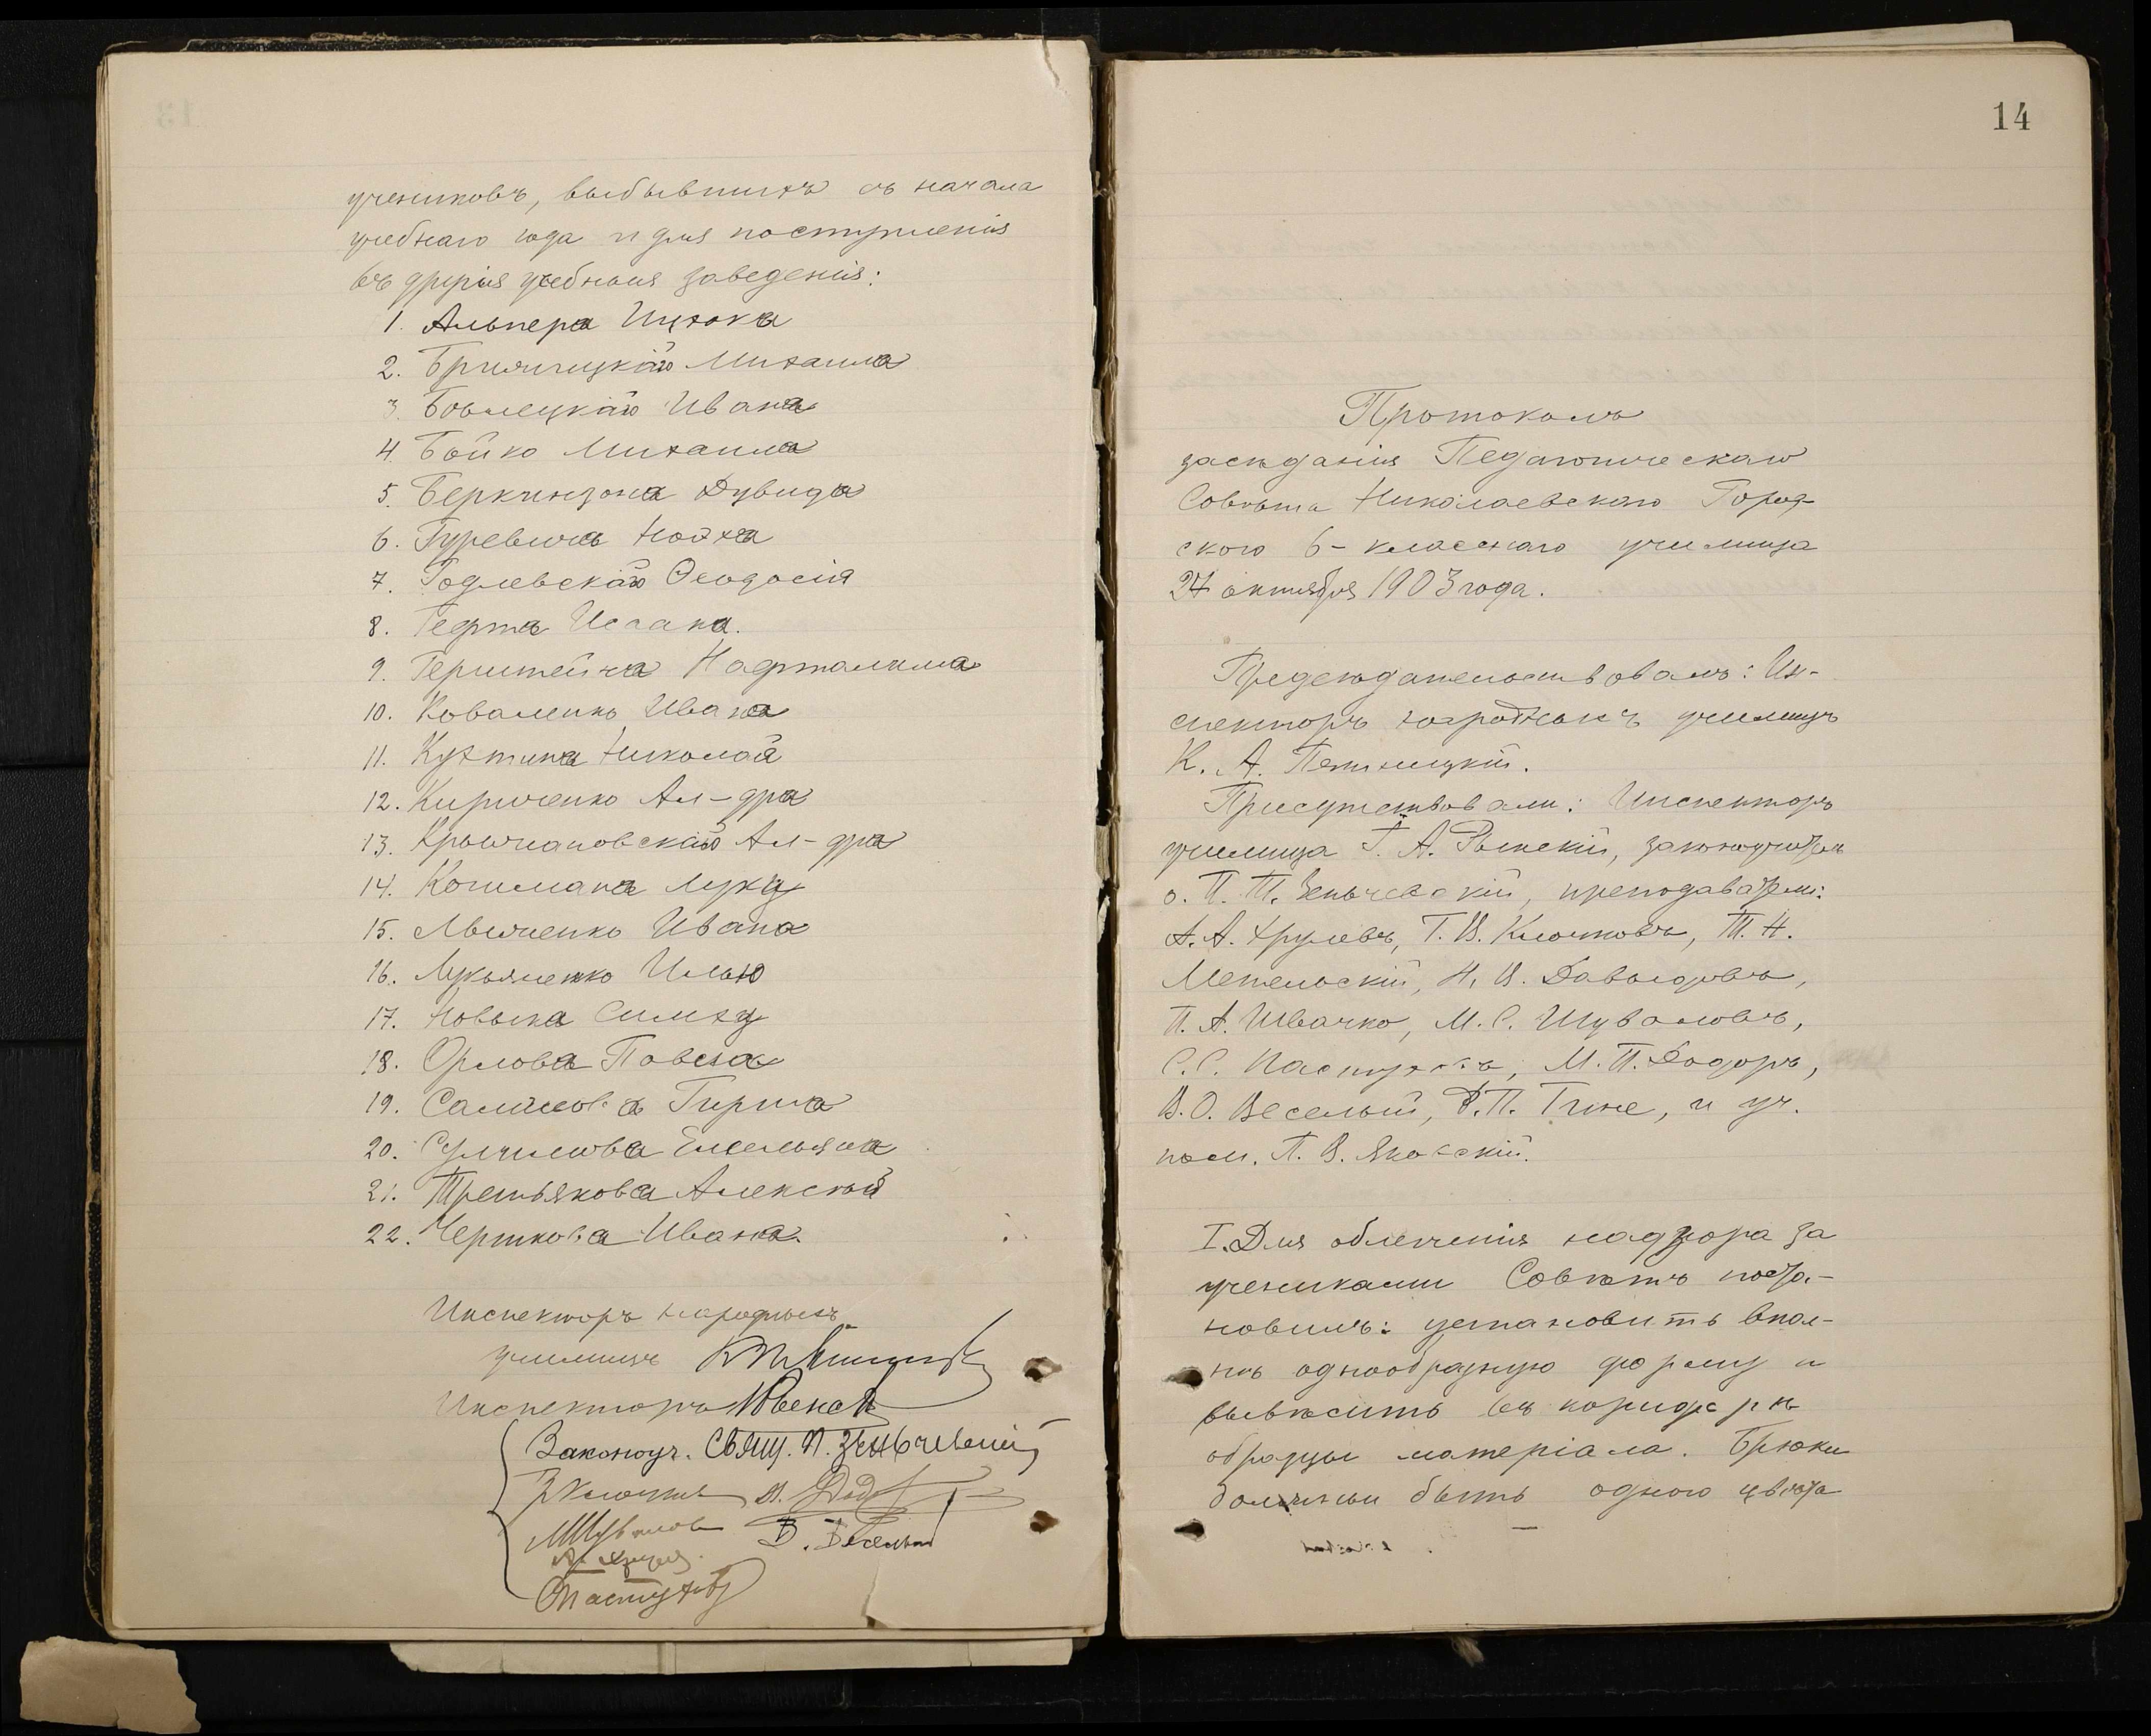 учениковъ, выбывшихъ съ начала
учебнаго года и для поступленія
въ другія учебныя заведенія:
1. Альпера Ицхока
2. Михаила
3. Ивана
4. Бойко Михаила
5. Беркинзона Дувида
6. Гуревича Нойха
7. Годлевскаго Ѳеодосія
8. Гефта Исаака.
9. Герштейна Нафталима
10. Коваленко Ивана
11. Кухтина Николая
12. Кириченко Ал-дра
13. Крыжановскаго Ал-дра
14. Когимана Луку
15. Ивана
16. Лукьяненко Илью
17. Новыка Симху
18. Орлова Павла
19. Гирша
20. Сулимова Емельяна
21. Третьякова Алексѣя
22. Черткова Ивана.
Инспекторъ народныхъ
училищъ
Инспекторъ
Законоуч. Свящ. П. Зеньчевскій
М Шувалов В. Веселый
Пастухов
14
Протоколъ
засѣданія Педагогическаго
Совѣта Николаевскаго Город-
ского 6-класснаго училища
27 октября 1903 года.
Предсѣдательствовалъ: Ин-
спекторъ народныхъ училищъ
К. А. Пятницкій.
Присутствовали: Инспекторъ
училища Г. А. Рымскій, законоучитель
о. П. Т. Зеньчевскій, преподаватели:
А. А. Хрулевъ, Г. В. Клочковъ, Т. Н.
Метельскій, Н. В. Давыдовъ,
П. А. Швачко, М. С. Шуваловъ,
С. С. Пастухъ, М. П. Додоръ,
В. О. Веселый, Ф. П. Гине, и уч.
пѣн. П. В. Яновскій.
I. Для облегченія надзора за
учениками Совѣтъ поста-
новилъ: установить впол-
нѣ однообразную форму и
вывѣсить въ коридорѣ
образцы матеріала. Брюки
должны быть одного цвѣта